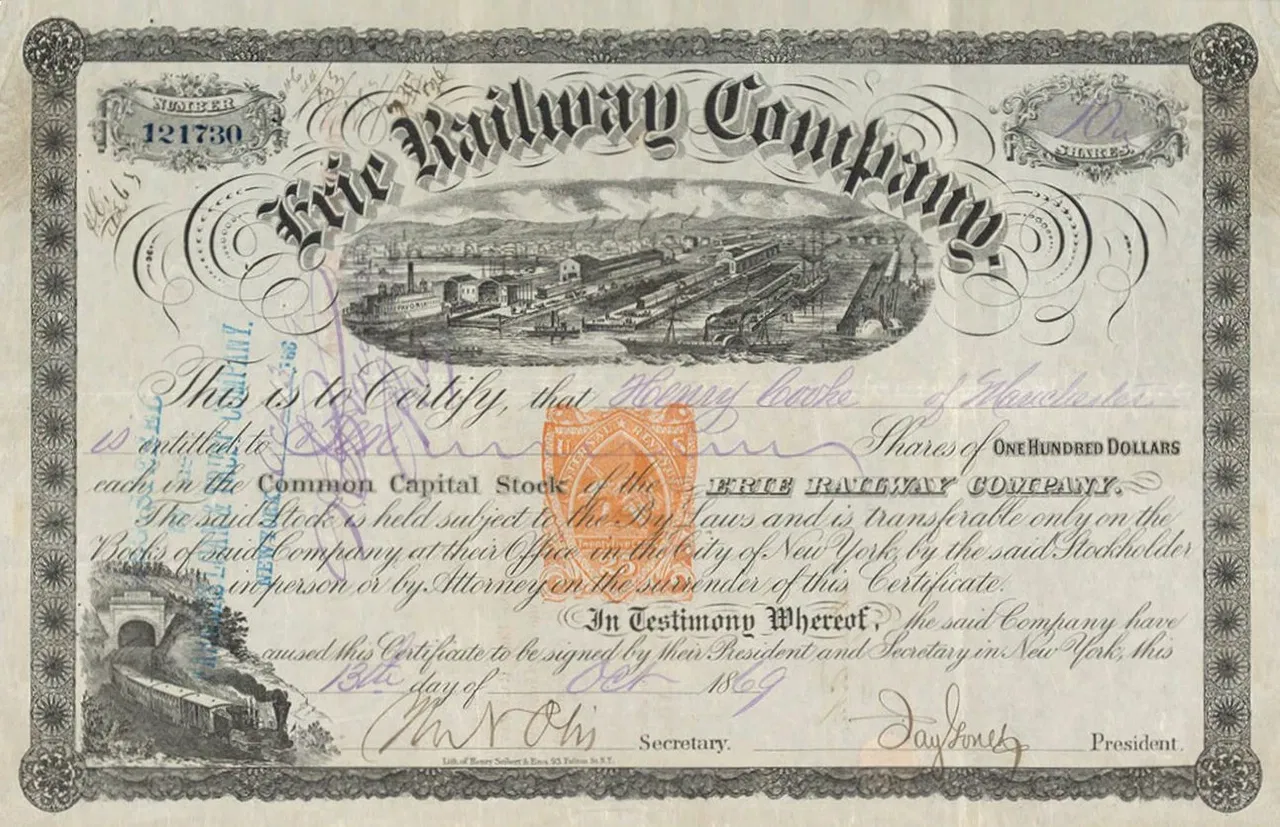 NUMBER
121730
Erie Railway Company.
SHARES.
PAVONIA
This is to Certify, that Henry Cooke of Manchester
is entitled to Shares of ONE HUNDRED DOLLARS
each in the Common Capital Stock of the ERIE RAILWAY COMPANY.
The said Stock is held subject to the By Laws and is transferable only on the
Books of said Company at their Office in the City of New York, by the said Stockholder
in person or by Attorney on the surrender of this Certificate.
In Testimony Whereof, the said Company have
caused this Certificate to be signed by their President and Secretary in New York, this
13th day of Oct 1869
Secretary.
Jay Gould
President.
Lith. of Henry Seibert & Bros. 93 Fulton St. N.Y.
U.S.
INTERNAL REVENUE
NEW YORK
COMPANY.